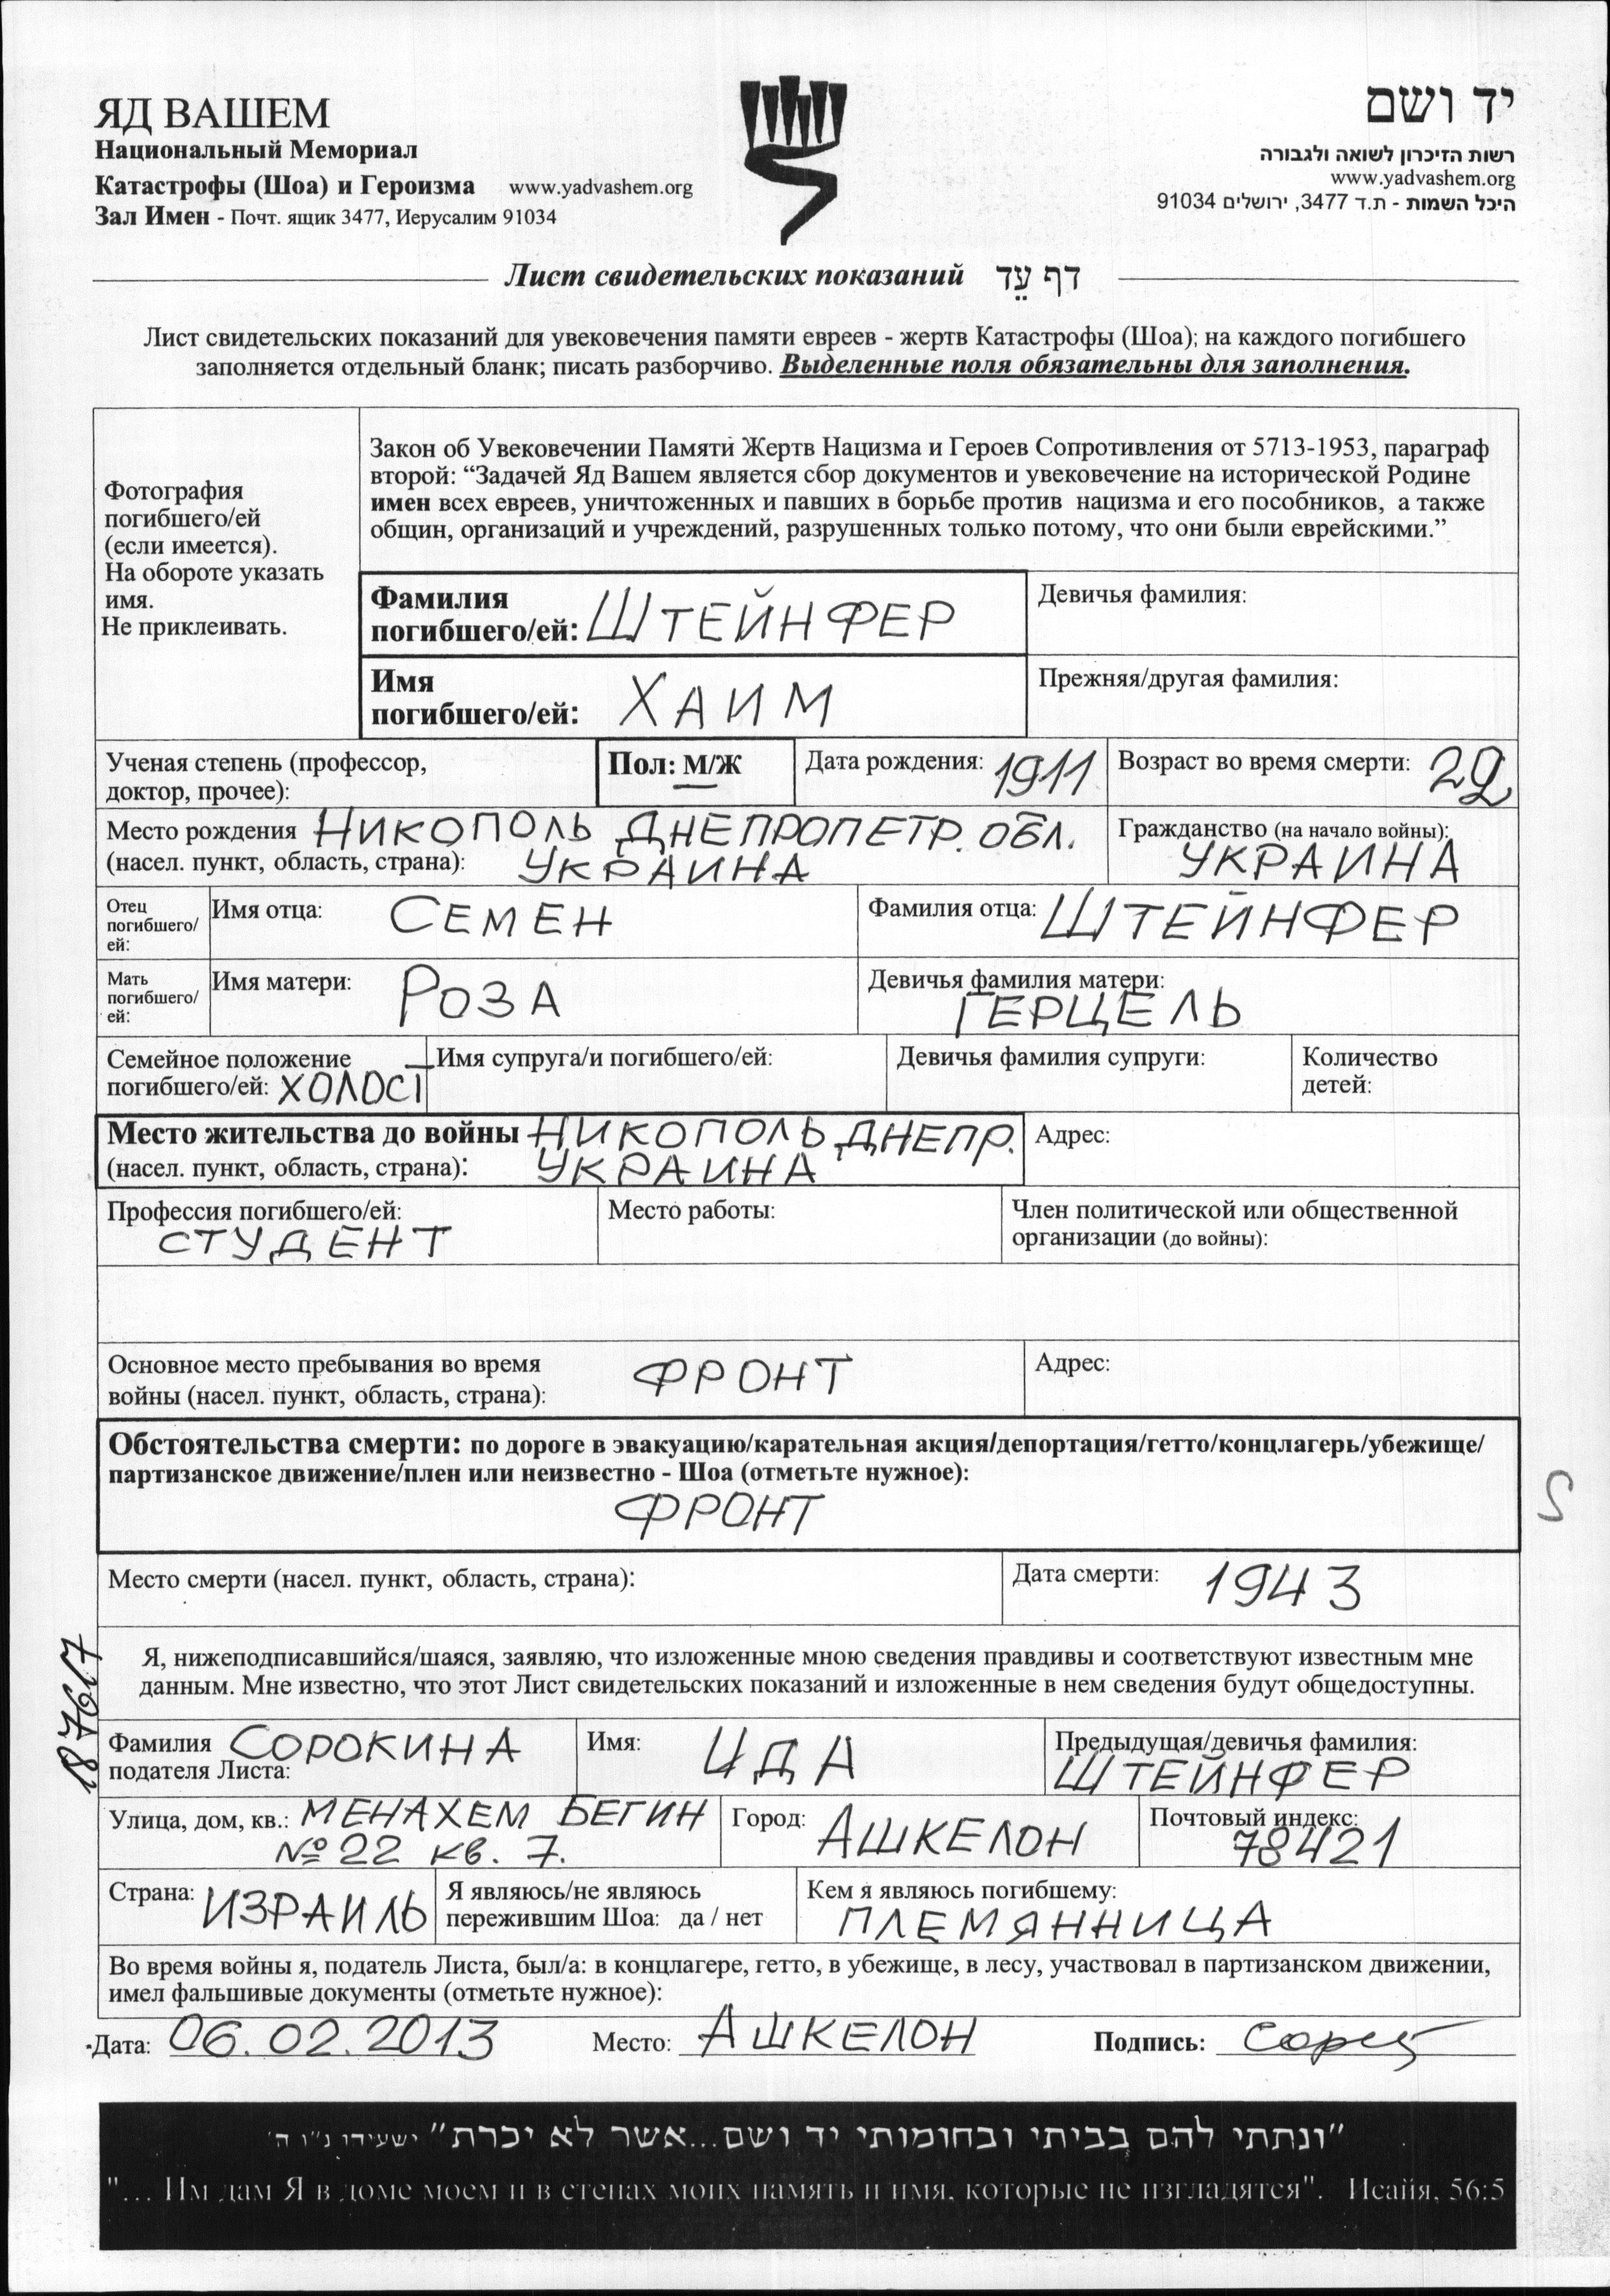 ЯД ВАШЕМ
Национальный Мемориал
Катастрофы (Шоа) и Героизма www.yadvashem.org
Зал Имен - Почт. ящик 3477, Иерусалим 91034
יד ושם
רשות הזיכרון לשואה ולגבורה
www.yadvashem.org
היכל השמות - ת.ד 3477, ירושלים 91034
Лист свидетельских показаний דף עֵד
Лист свидетельских показаний для увековечения памяти евреев - жертв Катастрофы (Шоа); на каждого погибшего
заполняется отдельный бланк; писать разборчиво. Выделенные поля обязательны для заполнения.
Фотография
погибшего/ей
(если имеется).
На обороте указать
имя.
Не приклеивать.
Закон об Увековечении Памяти Жертв Нацизма и Героев Сопротивления от 5713-1953, параграф
второй: “Задачей Яд Вашем является сбор документов и увековечение на исторической Родине
имен всех евреев, уничтоженных и павших в борьбе против нацизма и его пособников, а также
общин, организаций и учреждений, разрушенных только потому, что они были еврейскими.”
Фамилия
погибшего/ей: ШТЕЙНФЕР
Девичья фамилия:
Имя
погибшего/ей: ХАИМ
Прежняя/другая фамилия:
Ученая степень (профессор,
доктор, прочее):
Пол: М/Ж
Дата рождения: 1911
Возраст во время смерти: 22
Место рождения НИКОПОЛЬ ДНЕПРОПЕТР. ОБЛ.
(насел. пункт, область, страна): УКРАИНА
Гражданство (на начало войны):
УКРАИНА
Отец
погибшего/
ей:
Имя отца: СЕМЕН
Фамилия отца: ШТЕЙНФЕР
Мать
погибшего/
ей:
Имя матери: РОЗА
Девичья фамилия матери:
ГЕРЦЕЛЬ
Семейное положение
погибшего/ей: ХОЛОСТ
Имя супруга/и погибшего/ей:
Девичья фамилия супруги:
Количество
детей:
Место жительства до войны НИКОПОЛЬ ДНЕПР.
(насел. пункт, область, страна): УКРАИНА
Адрес:
Профессия погибшего/ей:
СТУДЕНТ
Место работы:
Член политической или общественной
организации (до войны):
Основное место пребывания во время
войны (насел. пункт, область, страна): ФРОНТ
Адрес:
Обстоятельства смерти: по дороге в эвакуацию/карательная акция/депортация/гетто/концлагерь/убежище/
партизанское движение/плен или неизвестно - Шоа (отметьте нужное):
ФРОНТ
Место смерти (насел. пункт, область, страна):
Дата смерти: 1943
Я, нижеподписавшийся/шаяся, заявляю, что изложенные мною сведения правдивы и соответствуют известным мне
данным. Мне известно, что этот Лист свидетельских показаний и изложенные в нем сведения будут общедоступны.
187617
Фамилия СОРОКИНА
подателя Листа:
Имя: ИДА
Предыдущая/девичья фамилия:
ШТЕЙНФЕР
Улица, дом, кв.: МЕНАХЕМ БЕГИН
№22 кв. 7.
Город: АШКЕЛОН
Почтовый индекс:
78421
Страна: ИЗРАИЛЬ
Я являюсь/не являюсь
пережившим Шоа: да / нет
Кем я являюсь погибшему:
ПЛЕМЯННИЦА
Во время войны я, податель Листа, был/а: в концлагере, гетто, в убежище, в лесу, участвовал в партизанском движении,
имел фальшивые документы (отметьте нужное):
Дата: 06.02.2013 Место: АШКЕЛОН Подпись:
"ונתתי להם בביתי ובחומותי יד ושם...אשר לא יכרת" ישעיהו נ"ו ה'
"... Им дам Я в доме моем и в стенах моих память и имя, которые не изгладятся". Исайя, 56:5